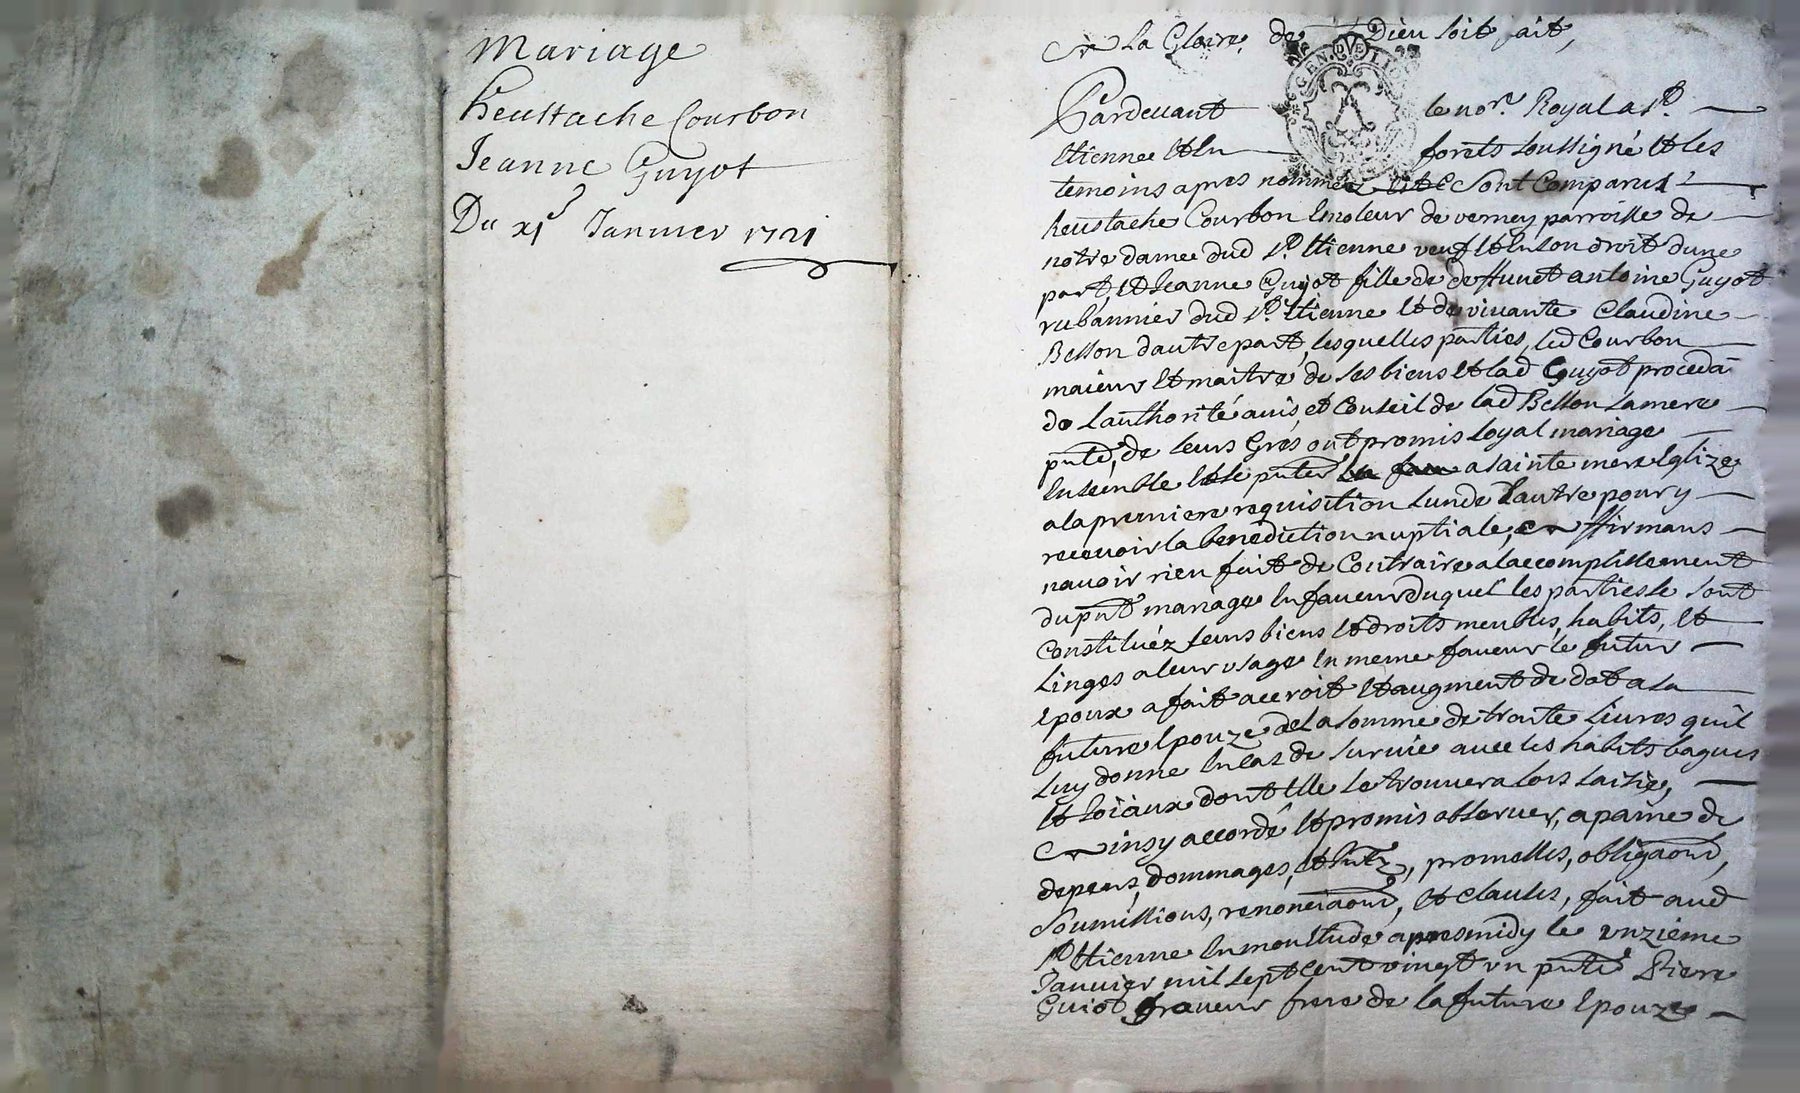 Mariage
heustache Courbon
Jeanne Guyot
Du xj Janvier 1721
A La Gloire de Dieu soit fait,
GEN. DE LION
Pardevant le nore. Royal a st.
Etienne et en forets soussigné et les
temoins apres nommez sont Comparus
heustache Courbon Emoleur de verney parroisse de
notre dame dud st. Etienne veuf et en son droit dune
part, et Jeanne Guyot fille de deffunct antoine Guyot
rubannier dud st. Etienne et de vivante Claudine
Besson dautre part, lesquelles parties, led Courbon
maieur et maitre de ses biens et lad Guyot procedã
de Lauthorité avis, et Conseil de lad Besson sa mere
pnte, de leurs Grés ont promis loyal mariage
Ensemble et se pnter a sainte mere Eglize
a la premiere requisition Lun de Lautre pour y
recevoir la benediction nuptiale, affirmans
navoir rien fait de Contraire a laccomplissement
du pnt mariage En faveur duquel les parties se sont
Constituéz Leurs biens et droits meubles, habits, et
Linges a leur usage En meme faveur le futur
Epoux a fait accroit et augment de dot a la
future Epouze de La somme de trante Livres quil
Luy donne En cas de survie avec les habits bagues
et Joiaux dont Elle se trouvera lors saisie,
Ainsy accordé et promis observer, a paine de
depens, dommages, et promesses, obligaons,
Soumissions, renonciaons, et clauses, fait aud
st Etienne En mon Etude apres midy le unzieme
Janvier mil sept cent vingt un pnts Pierre
Guiot graveur frere de la future Epouze